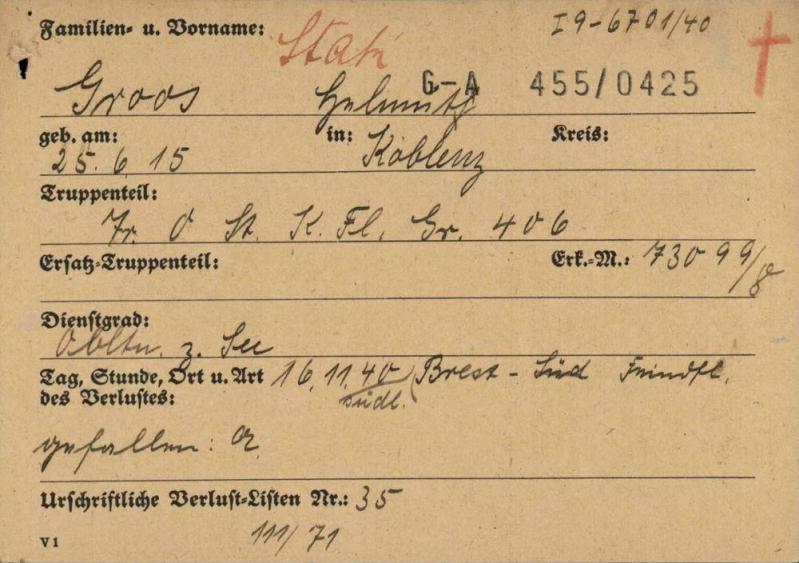 Familien- u. Vorname: I 9-6701/40
Groos Helmuth G-A 455/0425
geb. am: in: Kreis:
25. 6. 15 Koblenz
Truppenteil:
St. K. Fl. Gr. 406
Ersatz-Truppenteil: Erk.-M.: 73099/8
Dienstgrad:
Obltn. z. See
Tag, Stunde, Ort u. Art 16. 11. 40 Brest - Süd Feindfl.
des Verlustes: südl.
gefallen:
Urschriftliche Verlust-Listen Nr.: 35
V1 111/71